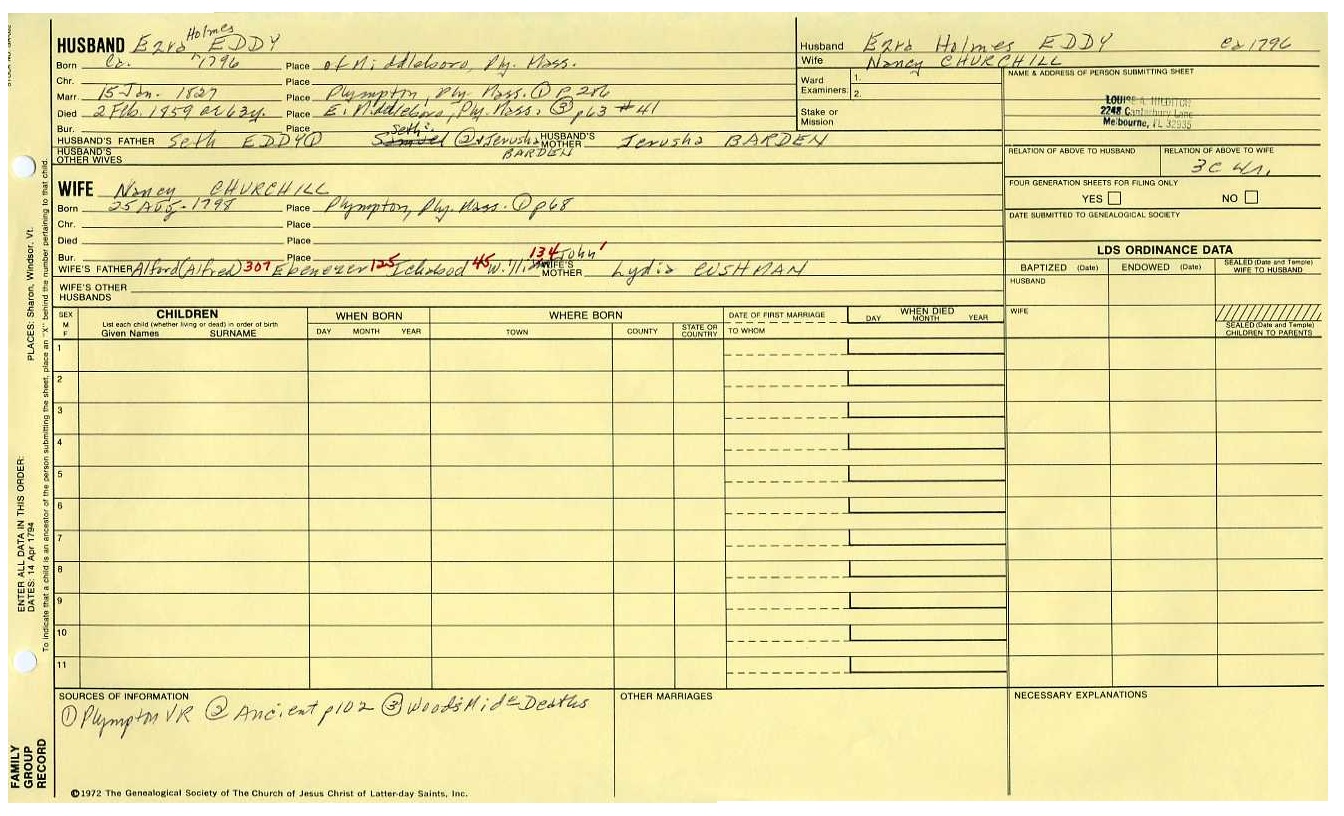 HUSBAND Ezra Holmes EDDY
Born Ca. 1796 Place of Middleboro, Ply. Mass.
Chr. Place
Marr. 15 Jan. 1827 Place Plympton, Ply. Mass. ① p 286
Died 2 Feb. 1859 ae 63y. Place E. Middleboro, Ply. Mass. ③ p63 #41
Bur. Place
HUSBAND'S FATHER Seth EDDY① Samuel Seth ② + Jerusha BARDEN HUSBAND'S MOTHER Jerusha BARDEN
HUSBAND'S OTHER WIVES
WIFE Nancy CHURCHILL
Born 25 Aug. 1798 Place Plympton, Ply. Mass. ① p68
Chr. Place
Died Place
Bur. Place
WIFE'S FATHER Alford (Alfred) 307 Ebenezer 125 Ichabod 45 Will. 134 John 1 WIFE'S MOTHER Lydia CUSHMAN
WIFE'S OTHER HUSBANDS
Husband Ezra Holmes EDDY Ca 1796
Wife Nancy CHURCHILL
Ward Examiners: 1.
2.
Stake or Mission
NAME & ADDRESS OF PERSON SUBMITTING SHEET
LOUISE A. HILDITCH
2248 Canterbury Lane
Melbourne, FL 32935
RELATION OF ABOVE TO HUSBAND
RELATION OF ABOVE TO WIFE
3C 4r.
FOUR GENERATION SHEETS FOR FILING ONLY
YES NO
DATE SUBMITTED TO GENEALOGICAL SOCIETY
LDS ORDINANCE DATA
BAPTIZED (Date) ENDOWED (Date) SEALED (Date and Temple) WIFE TO HUSBAND
HUSBAND
WIFE
SEALED (Date and Temple) CHILDREN TO PARENTS
SEX M F
CHILDREN
List each child (whether living or dead) in order of birth
Given Names SURNAME
WHEN BORN
DAY MONTH YEAR
WHERE BORN
TOWN COUNTY STATE OR COUNTRY
DATE OF FIRST MARRIAGE
TO WHOM
WHEN DIED
DAY MONTH YEAR
1
2
3
4
5
6
7
8
9
10
11
SOURCES OF INFORMATION
① Plympton VR ② Ancient p102 ③ Wood's Mid. Deaths
OTHER MARRIAGES
NECESSARY EXPLANATIONS
©1972 The Genealogical Society of The Church of Jesus Christ of Latter-day Saints, Inc.
FAMILY GROUP RECORD
ENTER ALL DATA IN THIS ORDER:
DATES: 14 Apr 1794
PLACES: Sharon, Windsor, Vt.
To indicate that a child is an ancestor of the person submitting the sheet, place an "X" behind the number pertaining to that child.